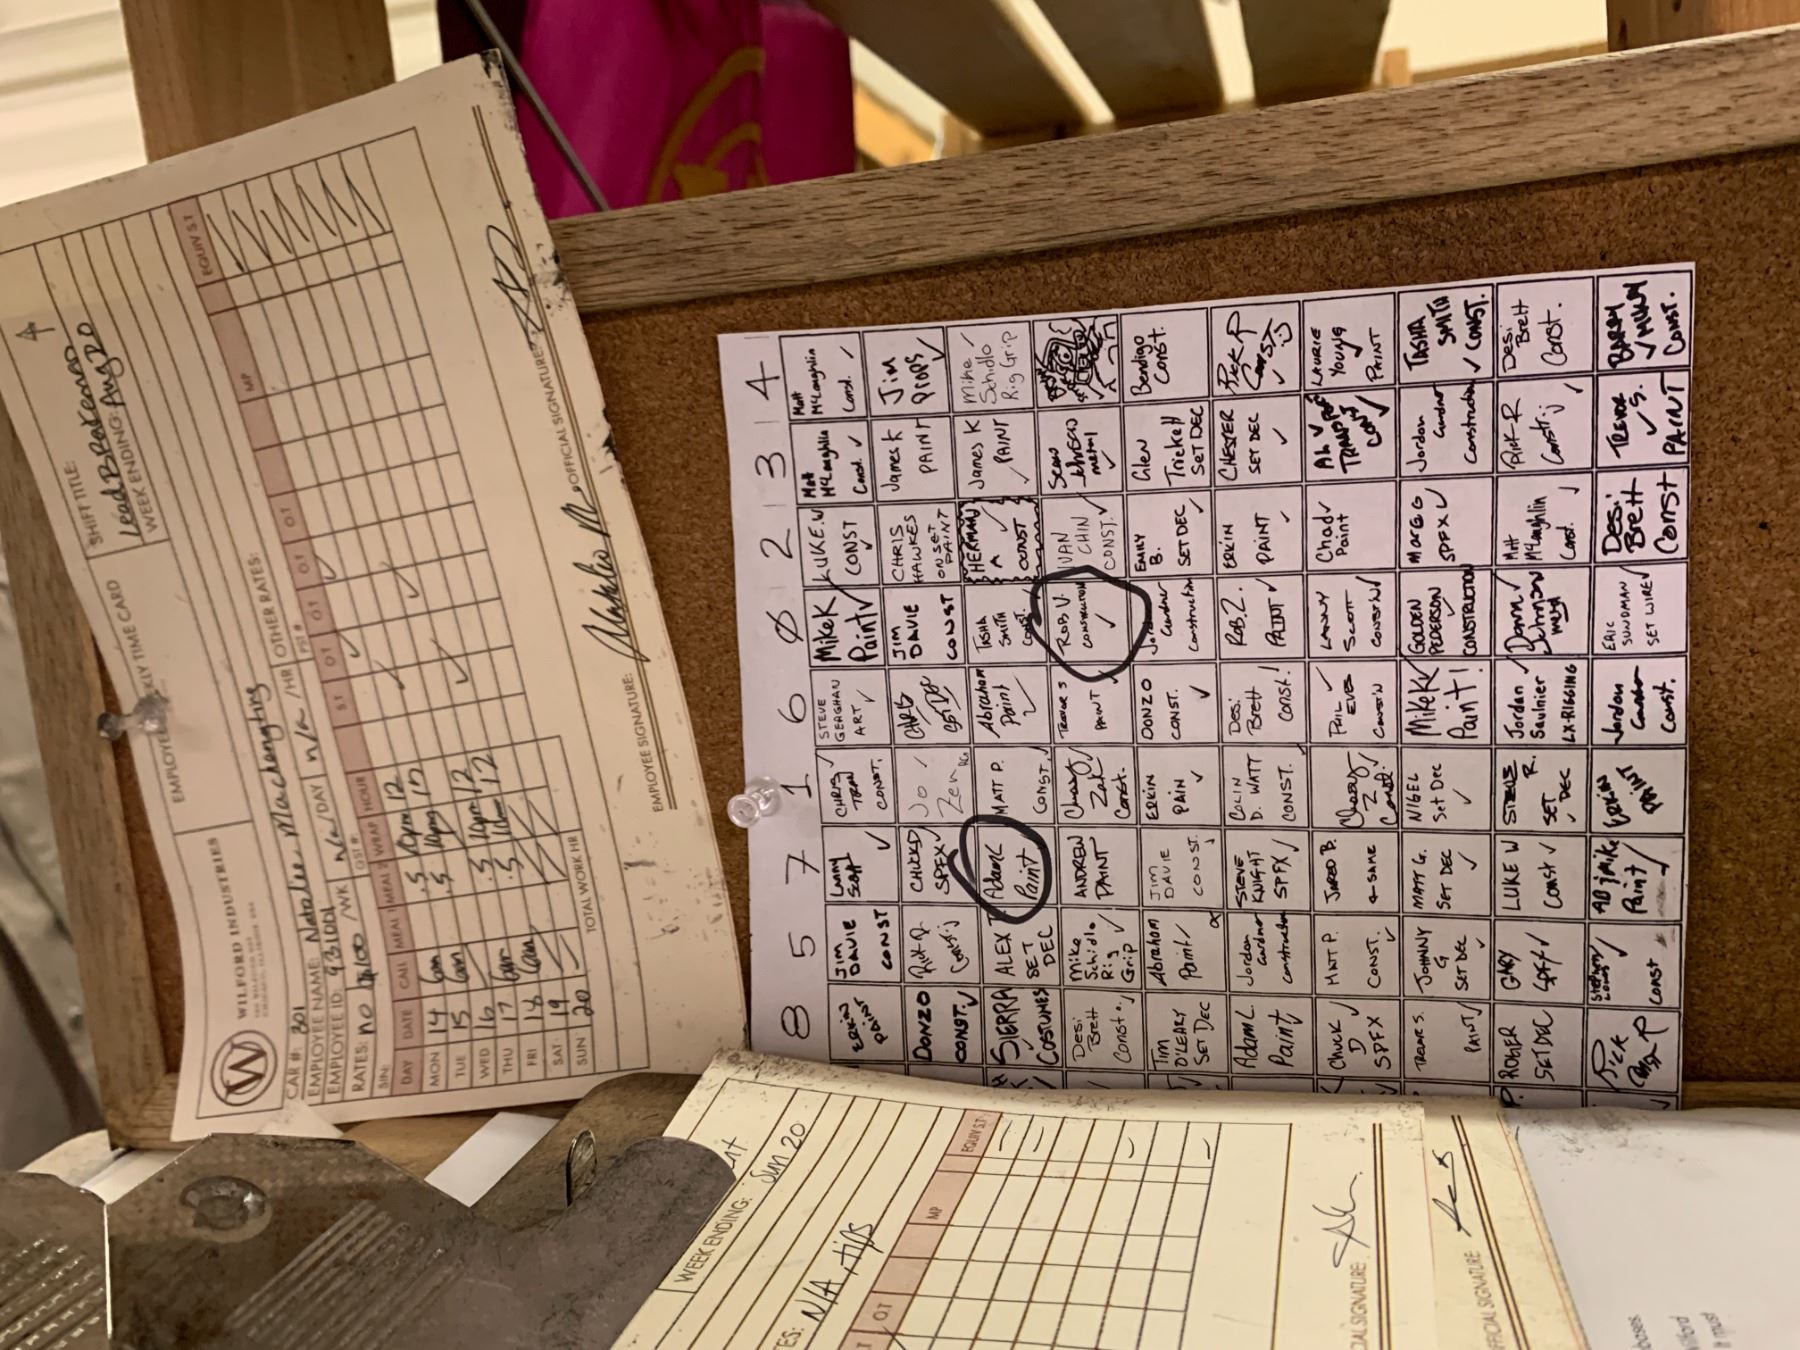 SHIFT TITLE:
Lead BRakeman
WEEK ENDING: Aug 20
WILFORD INDUSTRIES
CAR #: 301
EMPLOYEE NAME: Natalee Mac
EMPLOYEE ID: 931001
RATES: no
/WK
n/a /DAY
n/a /HR
OTHER RATES:
SIN:
GST #:
PST #:
DAY DATE CALL MEAL 1 MEAL 2 WRAP HOUR ST OT OT OT OT MP EQUIV ST
MON 14 6am .5 12
TUE 15 6am .5
WED 16 .5 12
THU 17 6am .5 12
FRI 18 6am
SAT 19
SUN 20
TOTAL WORK HR
EMPLOYEE SIGNATURE:
OFFICIAL SIGNATURE:
8 5 7 1 6 0 2 3 4
ERKIN PAINT
JIM DAVIE CONST
LANNY SCOTT
CHRIS TRAN CONST.
STEVE GEAGHAN ART
MIKE K Paint
LUKE.W CONST
Matt McLaughlin Const.
Matt McLaughlin Const.
DONZO CONST.
RICK R. Const
CHUCK D SPFX
Jo Zen
GARG SET DEC
JIM DAVIE CONST
CHRIS HAWKES ONSET PAINT
James K PAINT
Jim PROPS
SIERRA COSTUMES
ALEX T SET DEC
Adam L Paint
MATT P. CONST.
Abraham Paint
TASHA SMITH CONST.
SHERMAN A CONST
James K PAINT
Mike Schidlo Rig Grip
Desi Brett Const.
Mike Schidlo Rig Grip
ANDREW PAINT
Chazz Zak Const.
TREVOR S PAINT
ROB V. CONSTRUCTION
IVAN CHIN CONST.
Sean metal
Tim O'LEARY SET DEC
Abraham Paint
JIM DAVIE CONST.
ERKIN PAIN
DONZO CONST.
Jordan Gardner construction
EMILY B. SET DEC
Glen Trickett SET DEC
Bendigo Const.
Adam L. Paint
Jordan Gardner construction
STEVE KNIGHT SPFX
COLIN D. WATT CONST.
DESI Brett const!
ROB Z. PAINT
ERKIN PAINT
CHESTER SET DEC
RICK R CONST :)
CHUCK D SPFX
MATT P. CONST.
JARED B. ← SAME
Chazz Z Const!
PHIL EVES CONS'N
LANNY SCOTT CONST'N
Chad Paint
Ali V TRANSPORT
LAURIE YOUNG PAINT
TREVOR S. PAINT
JOHNNY G SET DEC
MATT G. SET DEC
NIGEL Set Dec
MIKE K Paint!
GOLDEN PEDERSON CONSTRUCTION
MARG G SPFX
Jordan Gardner Construction
TASHA SMITH CONST.
ROGER SET DEC
GARY SPFX
LUKE W Const
STEVE R. SET DEC
Jordan Saulnier LX-RIGGING
Matt McLaughlin Const.
RICK R Const
Desi Brett Const.
RICK
Const
Mike Paint
ERKIN PAINT
Jordan Gardner Const.
ERIC SUNDMAN SET WIRE
Desi Brett Const
TREVOR S. PAINT
BARRY CONST.
WEEK ENDING: Jun 20
N/A
OT
MP
EQUIV ST
OFFICIAL SIGNATURE